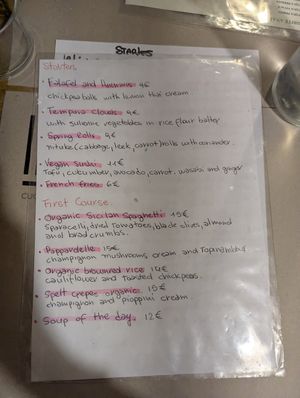 STARtes
Starters
• Falafel and Hummus 9€
chickpea balls with lemon thai cream
• Tempura Clouds 9€
with supreme vegetables in rice flour batter
• Spring Rolls 9€
(cabbage, leek, carrot) rolls with coriander
• Vegan Sushi 11€
Tofu, cucumber, avocado, carrot, wasabi and ginger
• French fries 6€
First Course
• Organic Sicilian Spaghetti 15€
Sparacelli, dried Tomatoes, black olives, almond
and bread crumbs.
• Pappardelle 15€
champignon mushrooms cream and
• Organic browned rice 14€
cauliflower and toasted chickpeas.
• Spelt crepes organic 15€
champignon and "pioppini cream.
• Soup of the day. 12€